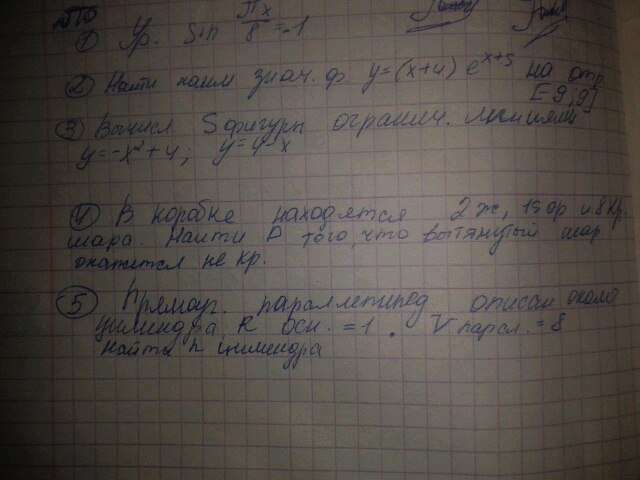 ① Ур. Sin πx/8 = -1
② Найти наим знач. ф y=(x+4) e^x+5 на отр
[-9;9]
③ Вычисл S фигуры огранич. линиями
y=-x²+4; y=4-x
④ В коробке находятся 2 ж, 15 ор и 8 кр.
шара. Найти P того, что вытянутый шар
окажится не кр.
⑤ Прямоуг. параллепипед описан около
цилиндра, R осн. = 1. V парал. = 8
найти h цилиндра